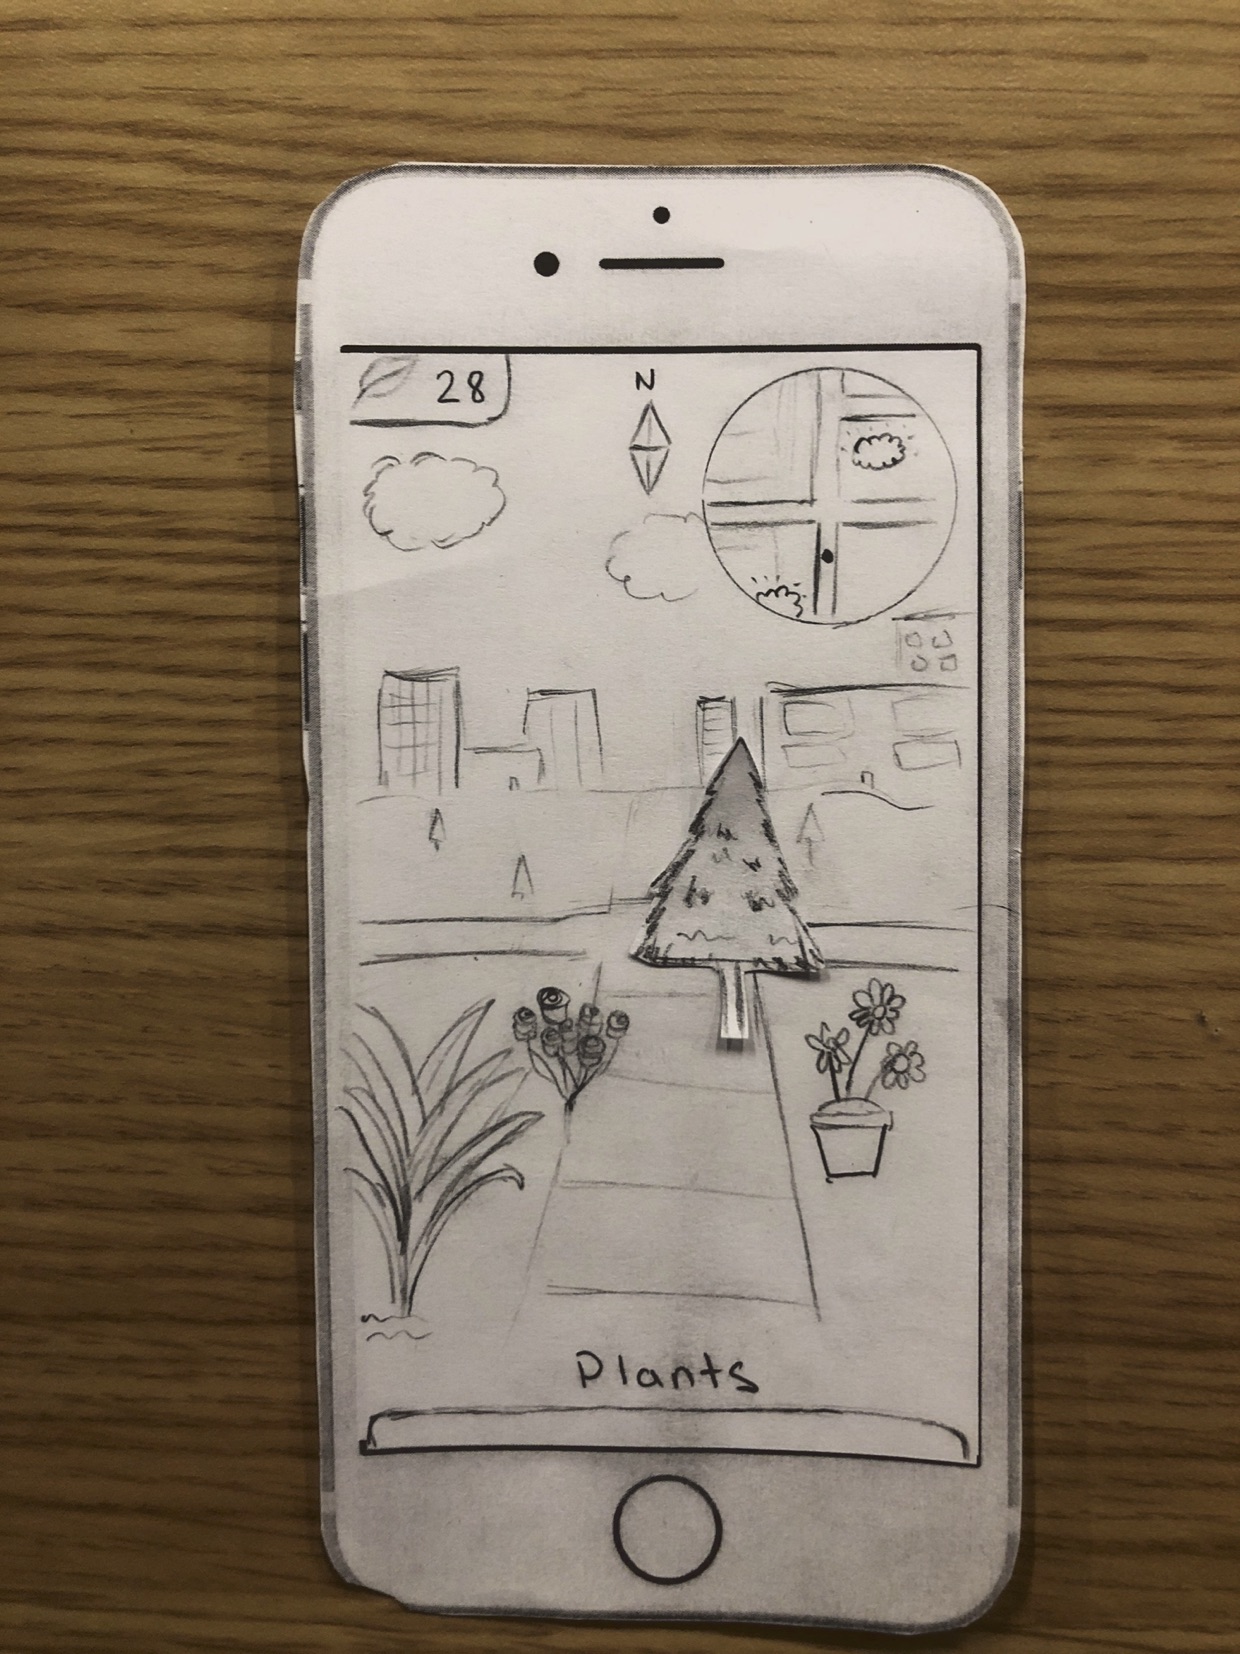 28
N
Plants